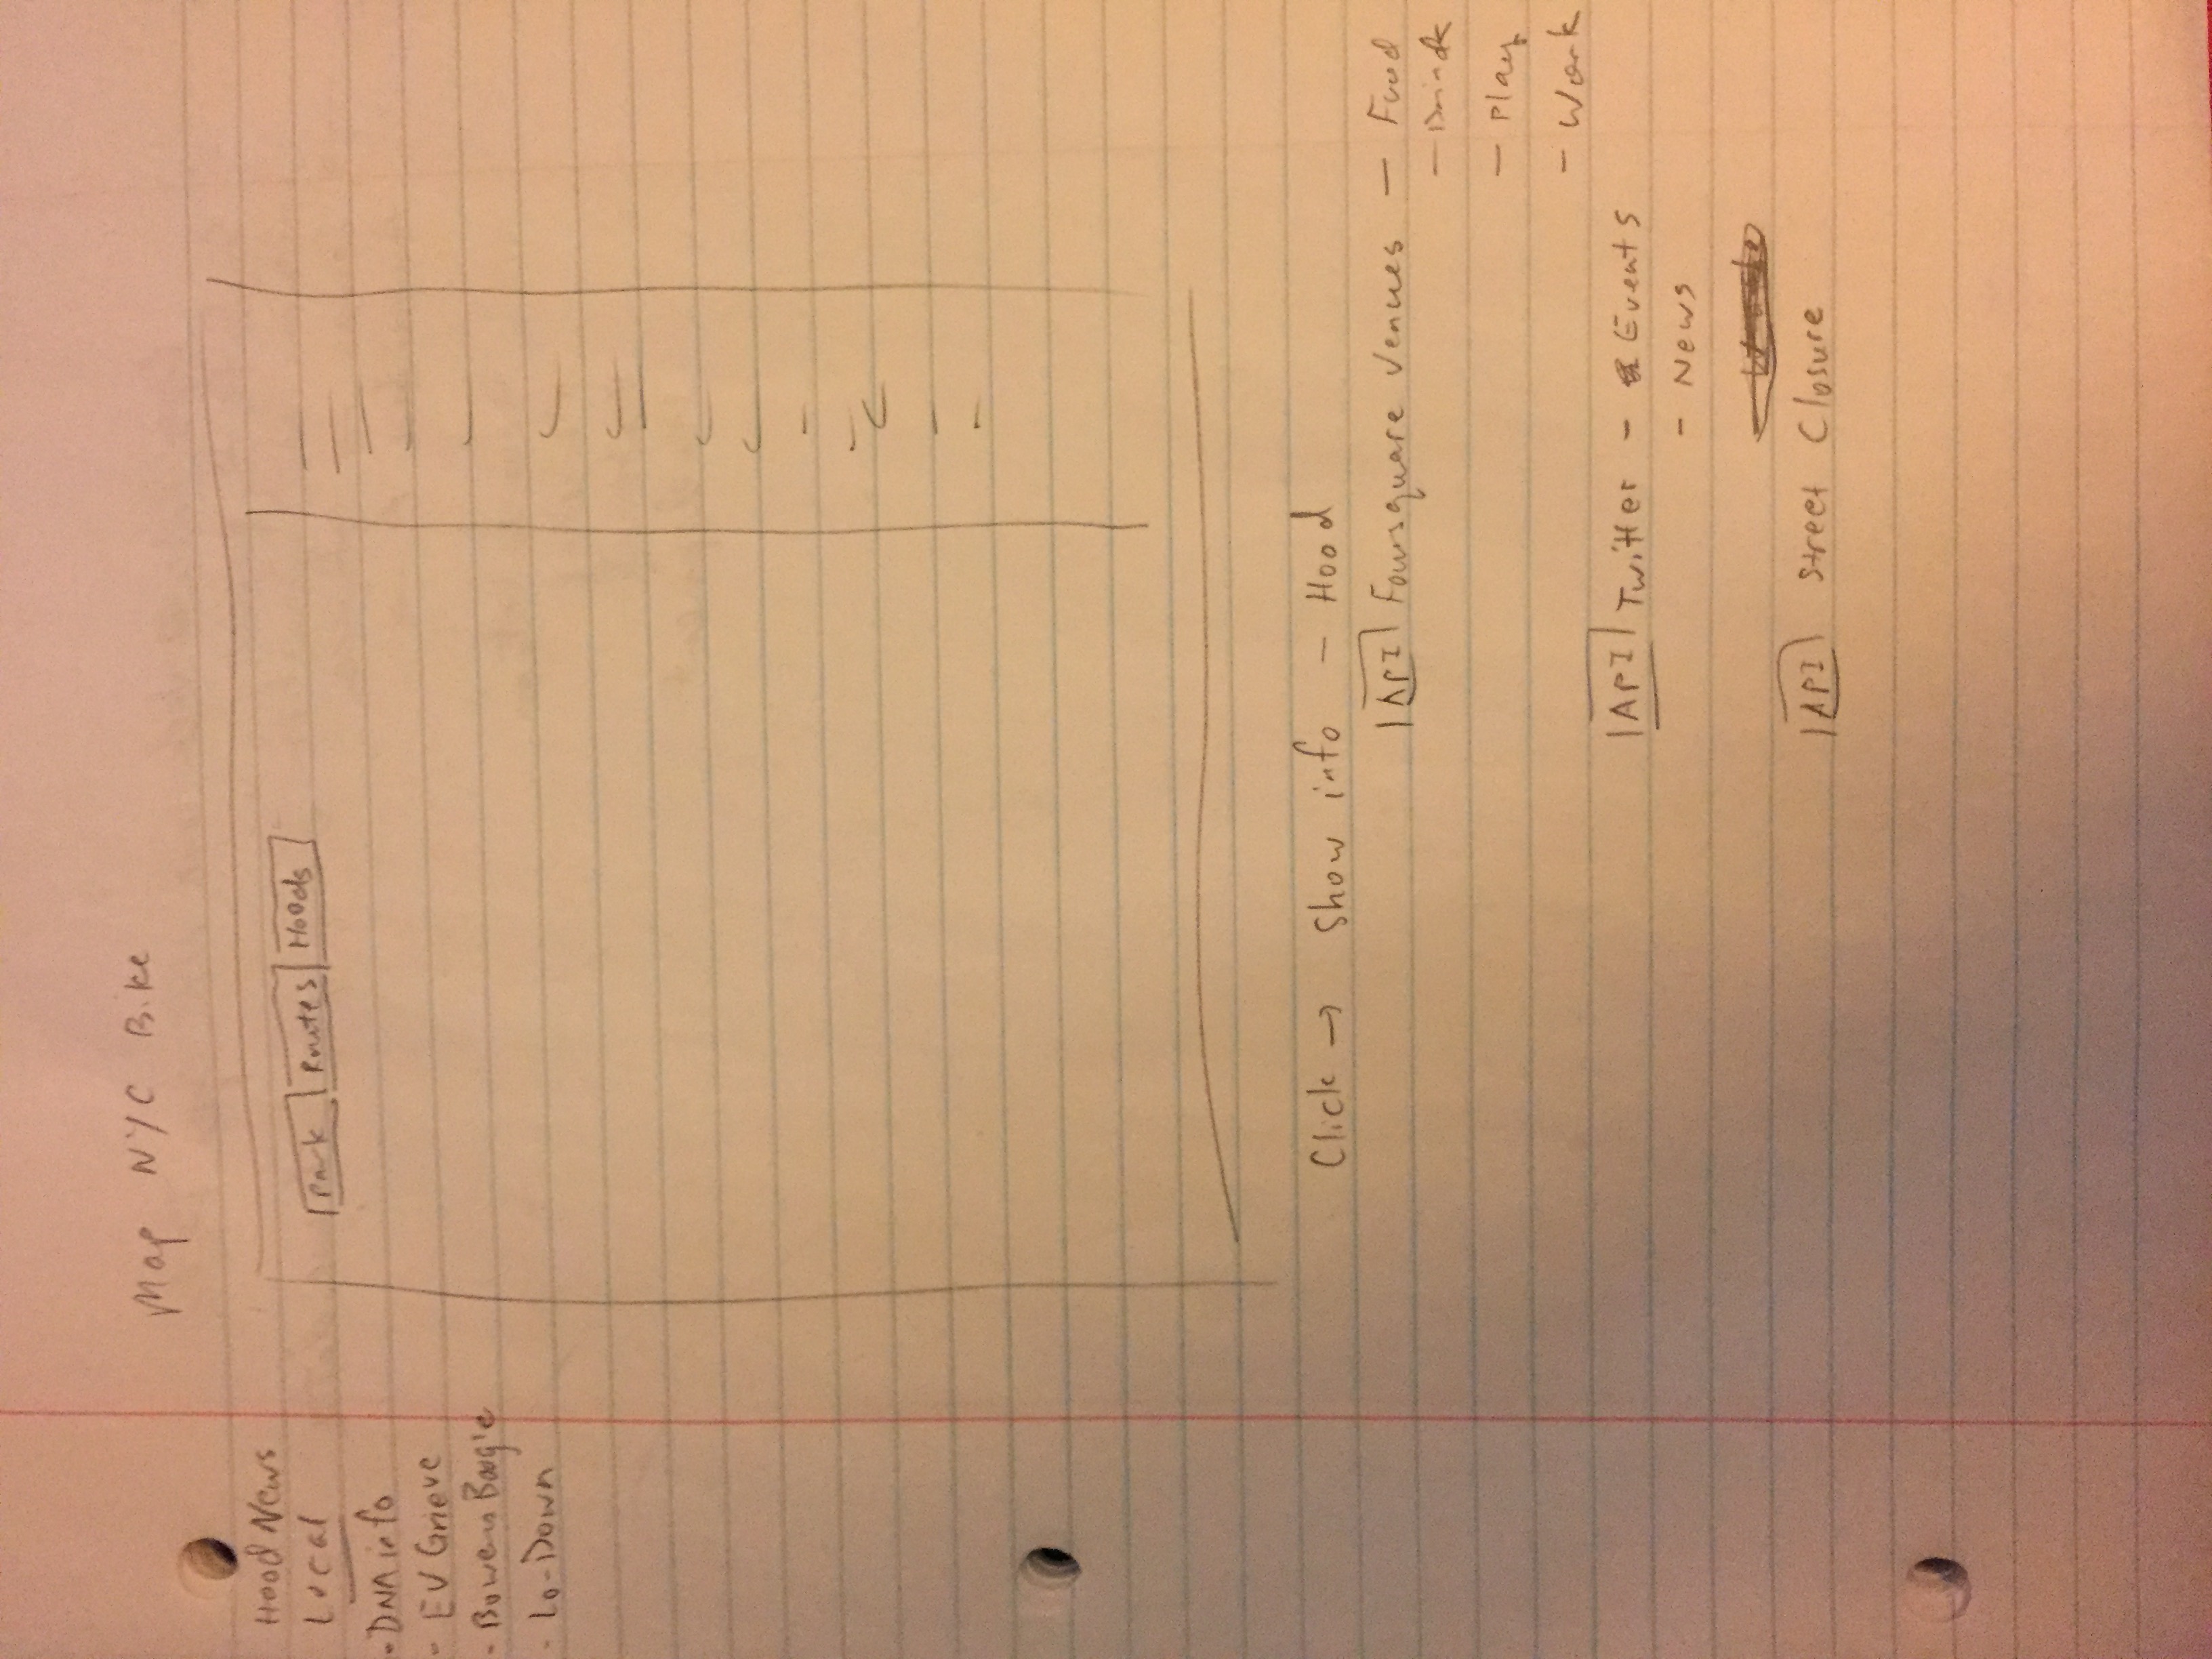 Map NYC Bike
Hood News
Local
- DNA info
- EV Grieve
- Bowery Boogie
- Lo-Down
Park Routes Hoods
Click → Show info - Hood
API Foursquare Venues - Food
- Drink
- Play
- Work
API Twitter - Events
- News
API Street Closure